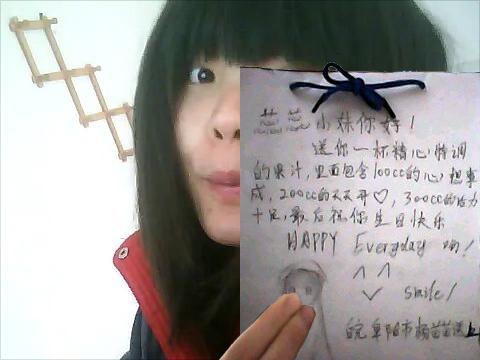 芸芸小妹你好!
送你一杯精心特调
的果汁,里面包含100cc的心想事
成,200cc的天天开♡,300cc的活力
十足,最后祝你生日快乐
HAPPY Everyday 哟!
smile!
皖阜阳市杨苗苗送上